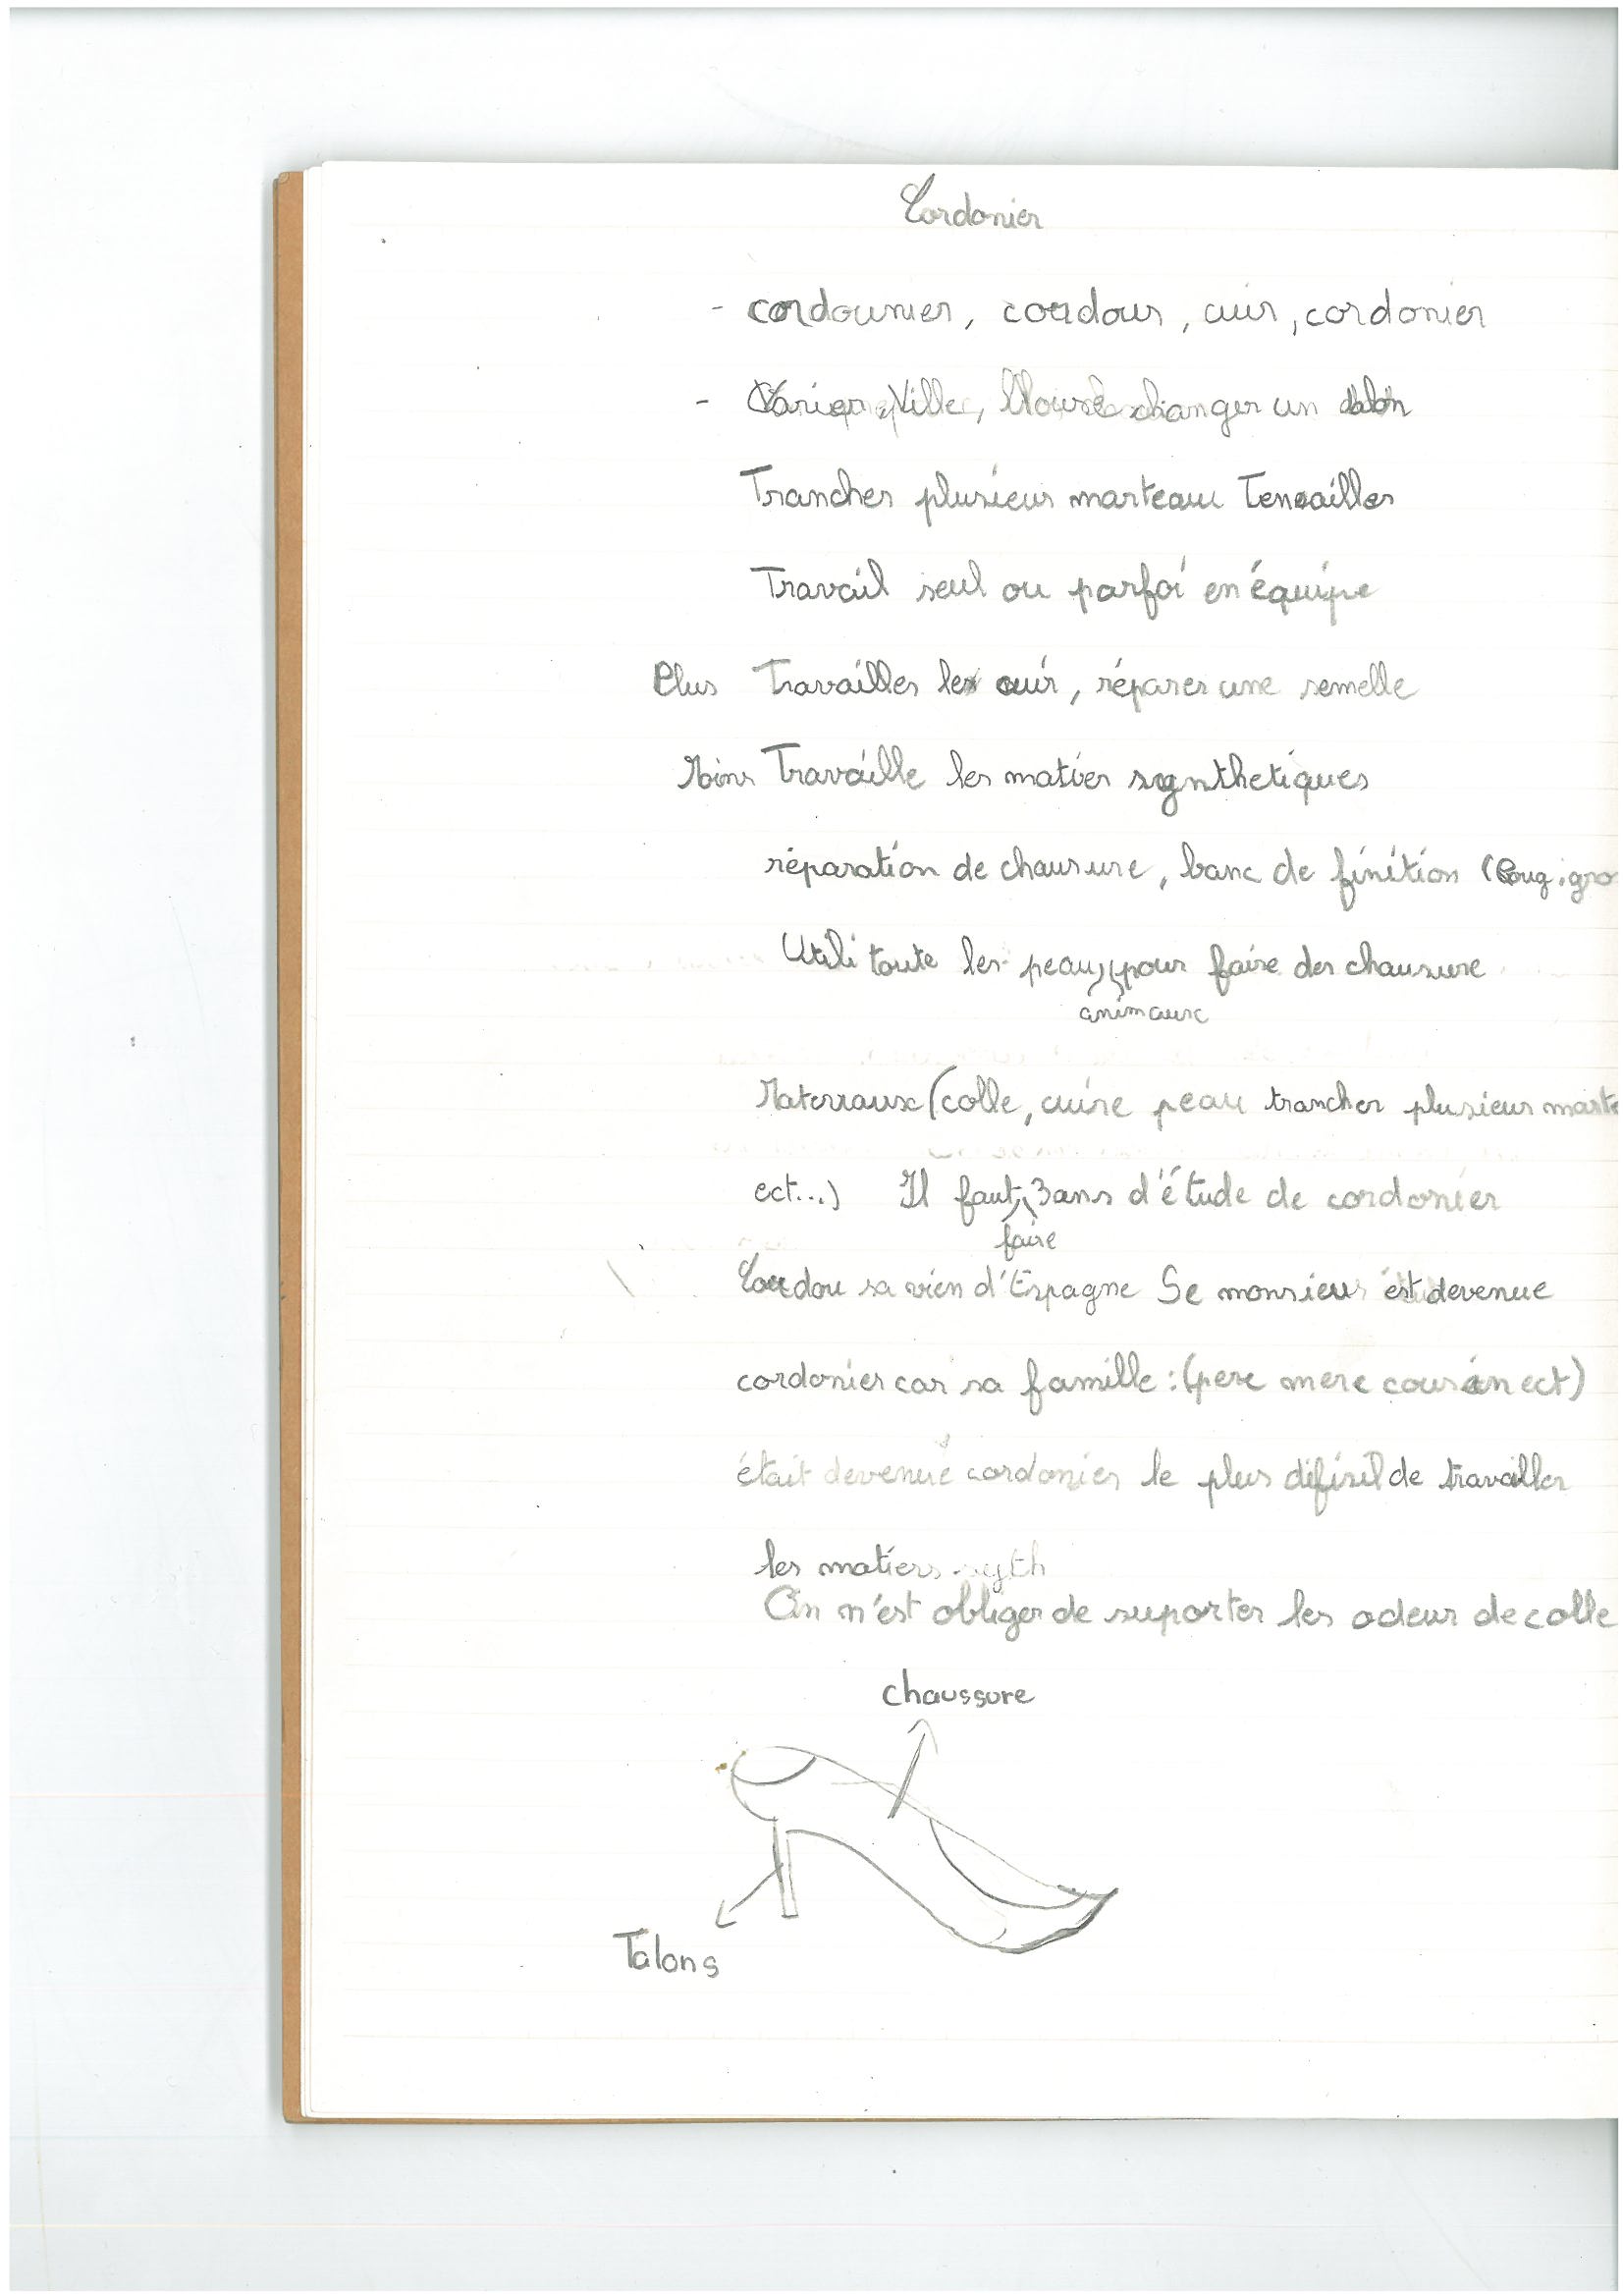 Cordonier
- cordounier, courdous, cuir, cordonier
- Varier, Ville, Blouse changer un talon
Trancher plusieur marteau Tenailles
Travail seul ou parfoi en équipe
Plus Travailler le cuir, réparer une semelle
Moins Travaille les matier synthetiques
réparation de chausure, banc de finition (
Utili toute les peau pour faire des chausure
animaux
Materraux (colle, cuire peau trancher plusieur marte
ect...) Il faut 3ans d'étude de cordonier
faire
Courdou sa vien d'Espagne Se monsieur est devenue
cordonier car sa famille : (pere mere cousin ect)
était devenue cordonier le plus difisil de travailler
les matiers syth
On n'est obliger de suporter les odeur de colle
chaussure
Talons